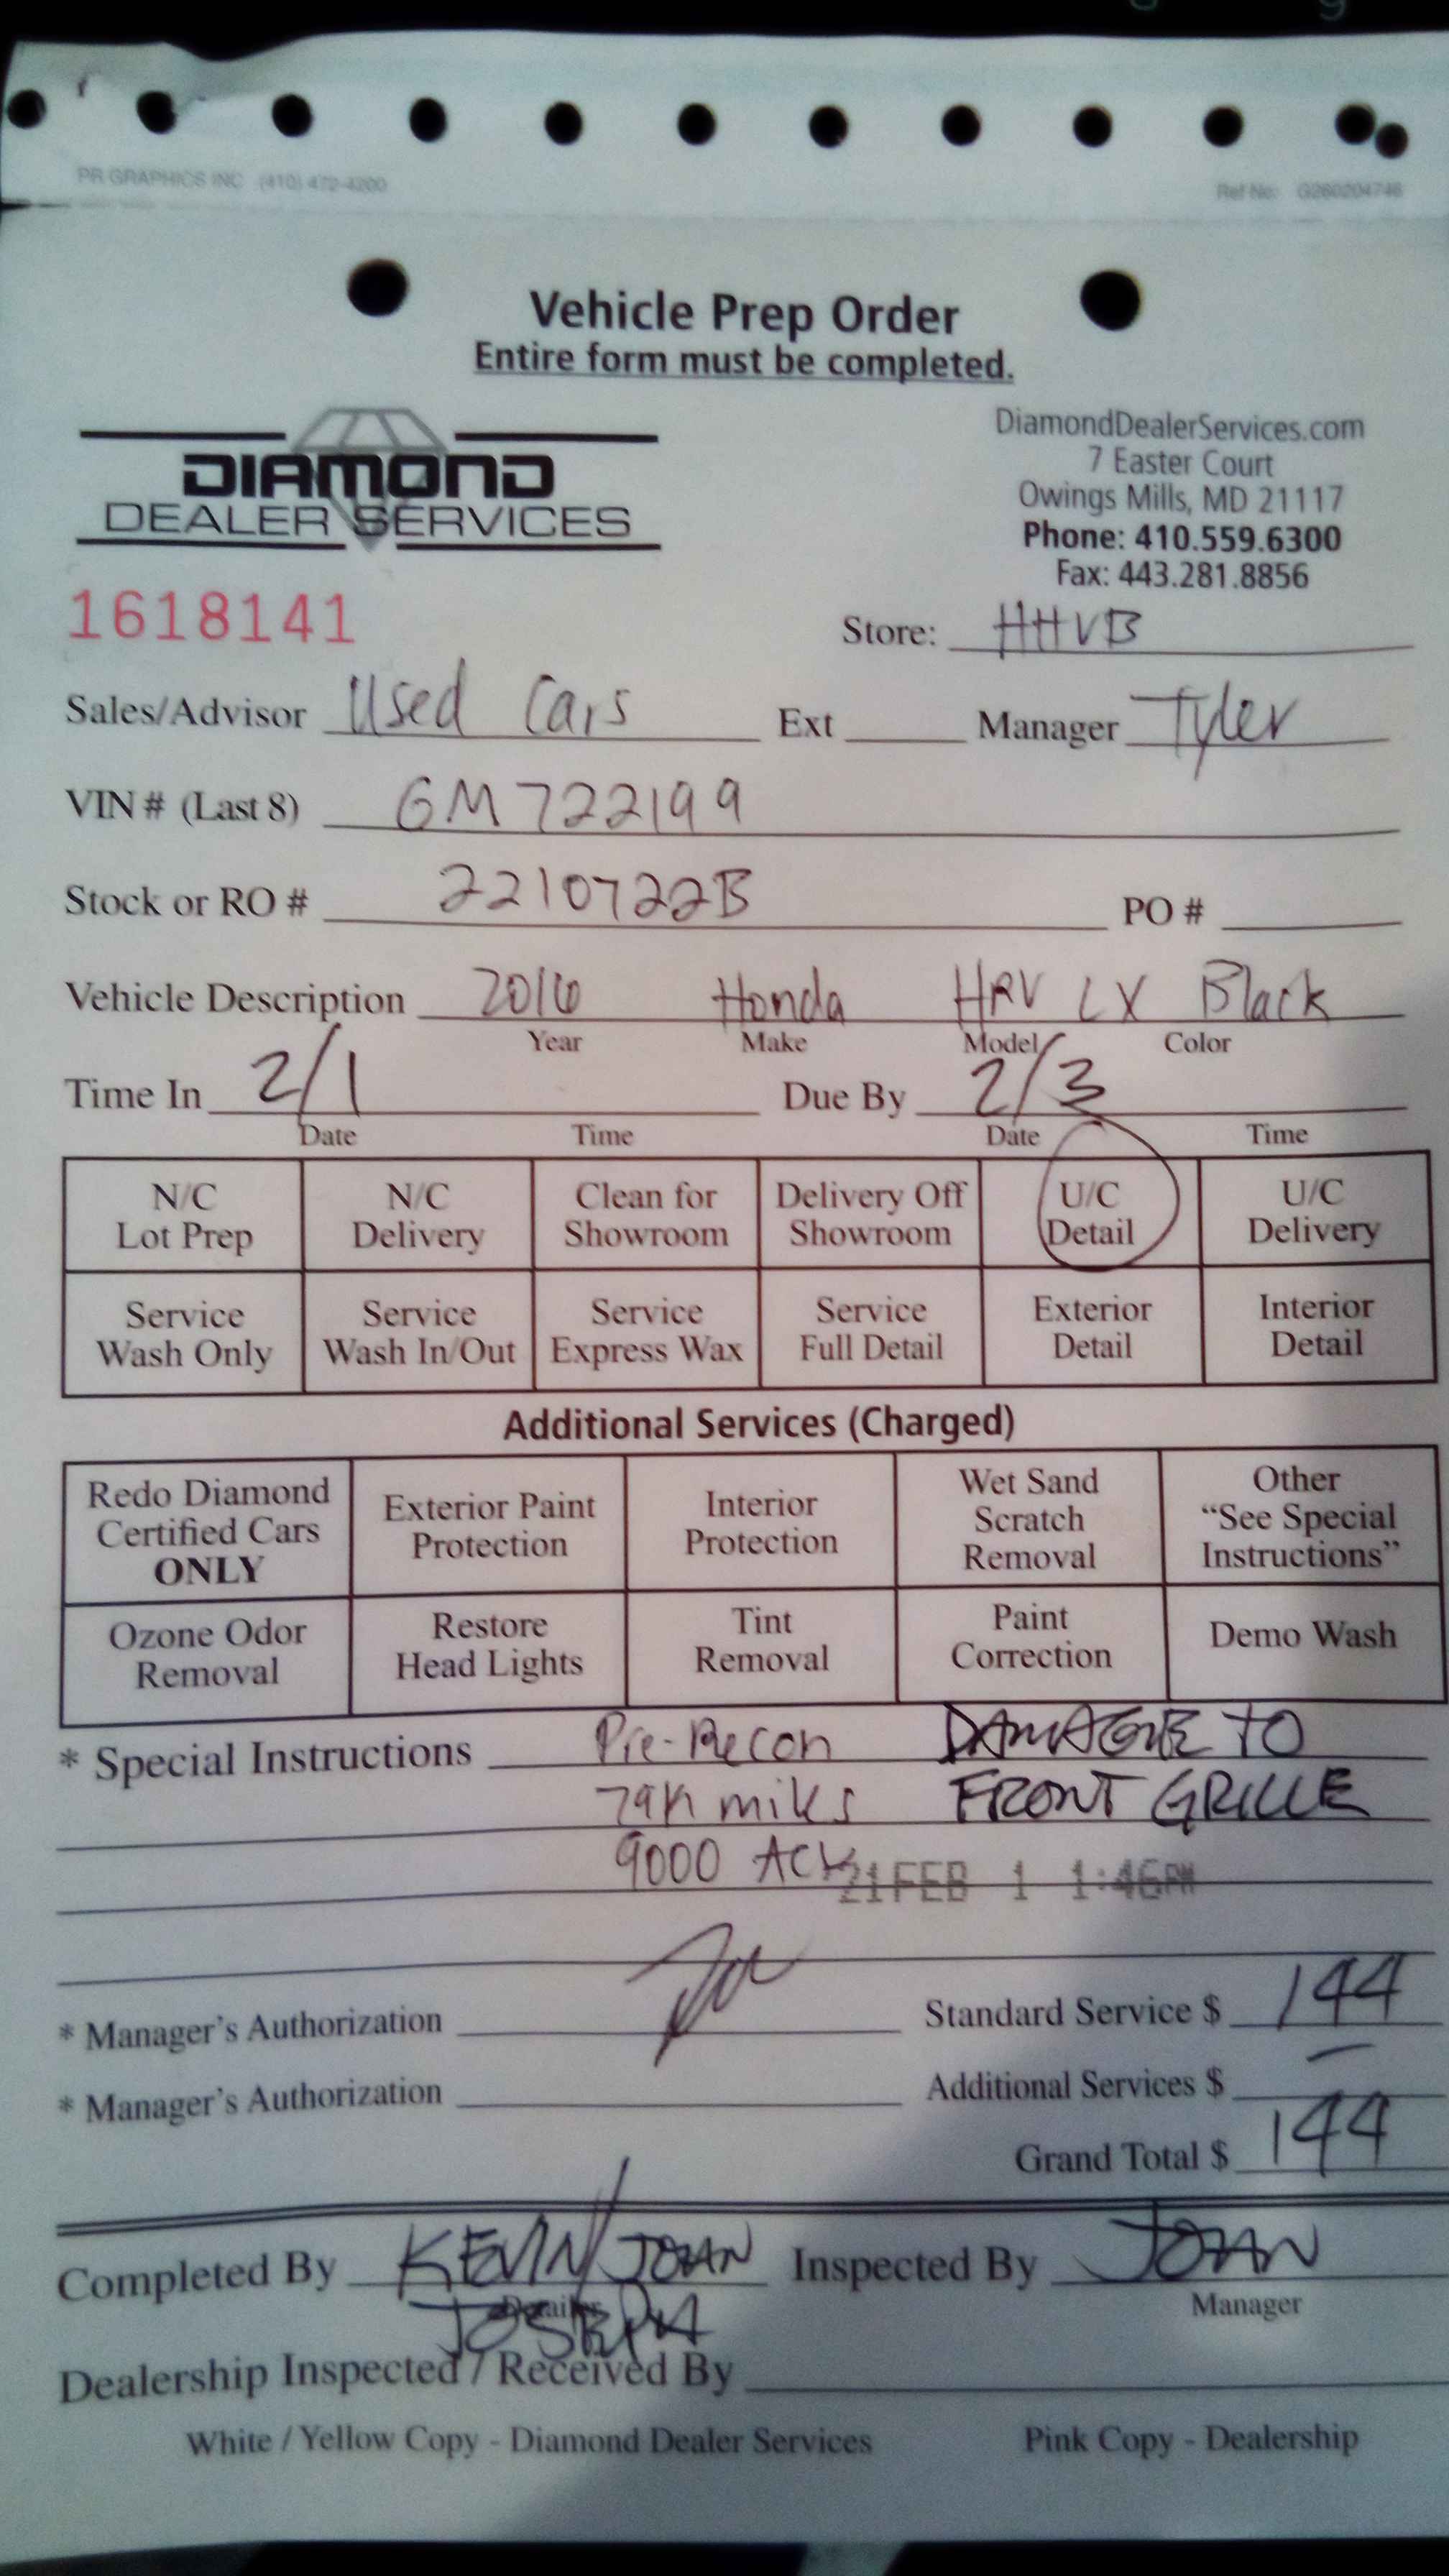 PR GRAPHICS INC (410) 472-4200 Ref No: G260204746
Vehicle Prep Order
Entire form must be completed.
DIAMOND
DEALER SERVICES
DiamondDealerServices.com
7 Easter Court
Owings Mills, MD 21117
Phone: 410.559.6300
Fax: 443.281.8856
1618141
Store: HHVB
Sales/Advisor Used Cars Ext Manager Tyler
VIN # (Last 8) GM722199
Stock or RO # 2210722B PO #
Vehicle Description 2016 Honda HRV LX Black
Year Make Model Color
Time In 2/1 Due By 2/3
Date Time Date Time
N/C Lot Prep N/C Delivery Clean for Showroom Delivery Off Showroom U/C Detail U/C Delivery
Service Wash Only Service Wash In/Out Service Express Wax Service Full Detail Exterior Detail Interior Detail
Additional Services (Charged)
Redo Diamond Certified Cars ONLY Exterior Paint Protection Interior Protection Wet Sand Scratch Removal Other "See Special Instructions"
Ozone Odor Removal Restore Head Lights Tint Removal Paint Correction Demo Wash
* Special Instructions Pre-Recon DAMAGE TO
79k miles FRONT GRILLE
9000 ACK
21 FEB 1 1:46PM
* Manager's Authorization Standard Service $ 144
* Manager's Authorization Additional Services $ —
Grand Total $ 144
Completed By KEVIN/JOHAN Inspected By JOHAN
Detailer Manager
JOSEPH
Dealership Inspected / Received By
White / Yellow Copy - Diamond Dealer Services Pink Copy - Dealership